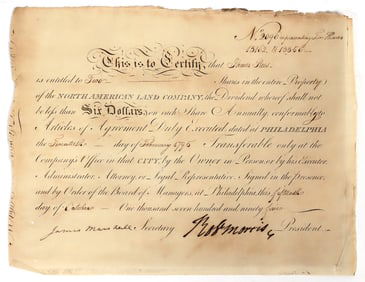 No.
This is to Certify, that James
is entitled to Two Shares in the entire Property
of the NORTH AMERICAN LAND COMPANY, the Dividend whereof shall not
be less than Six Dollars on each Share Annually, conformably to
Articles of Agreement Duly Executed dated in PHILADELPHIA
the day of February 1795 Transferable only at the
Company's Office in that CITY, by the Owner in Person, or by his Executor
Administrator, Attorney, or Legal Representative. Signed in the Presence,
and by Order of the Board of Managers, at Philadelphia, this
day of October One thousand seven hundred and ninety
James Marshall Secretary Robt Morris President.